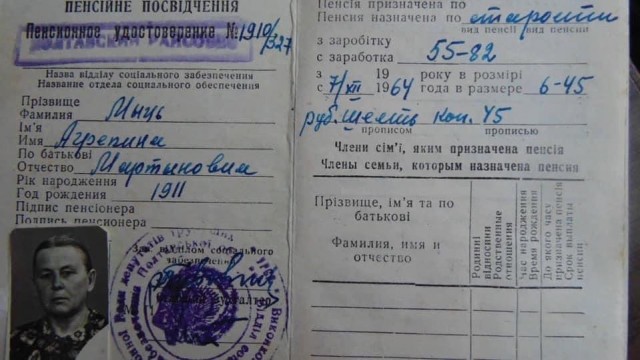 ПЕНСІЙНЕ ПОСВІДЧЕННЯ
Пенсионное удостоверение №1910/327
ПОЛТАВСКИЙ РАЙСОБЕС
Назва відділу соціального забезпечення
Название отдела социального обеспечения
Прізвище
Фамилия Мнуь
Ім'я
Имя Агрепина
По батькові
Отчество Мартыновна
Рік народження
Год рождения 1911
Підпис пенсіонера
Подпись пенсионера
Зав. відділом соціального
забезпечення
бухгалтер
Пенсія призначена по
Пенсия назначена по старости
вид пенсії вид пенсии
з заробітку
с заработка 55-82
з 19 року в розмірі
с 7/XII 1964 года в размере 6-45
руб. шесть коп. 45
прописом прописью
Члени сім'ї, яким призначена пенсія
Члены семьи, которым назначена пенсия
Прізвище, ім'я та по
батькові
Фамилия, имя и
отчество
Родинні
відносини
Родственные
отношения
Час народження
Время рождения
До якого часу
призначена пенсія
Срок выплаты
пенсии